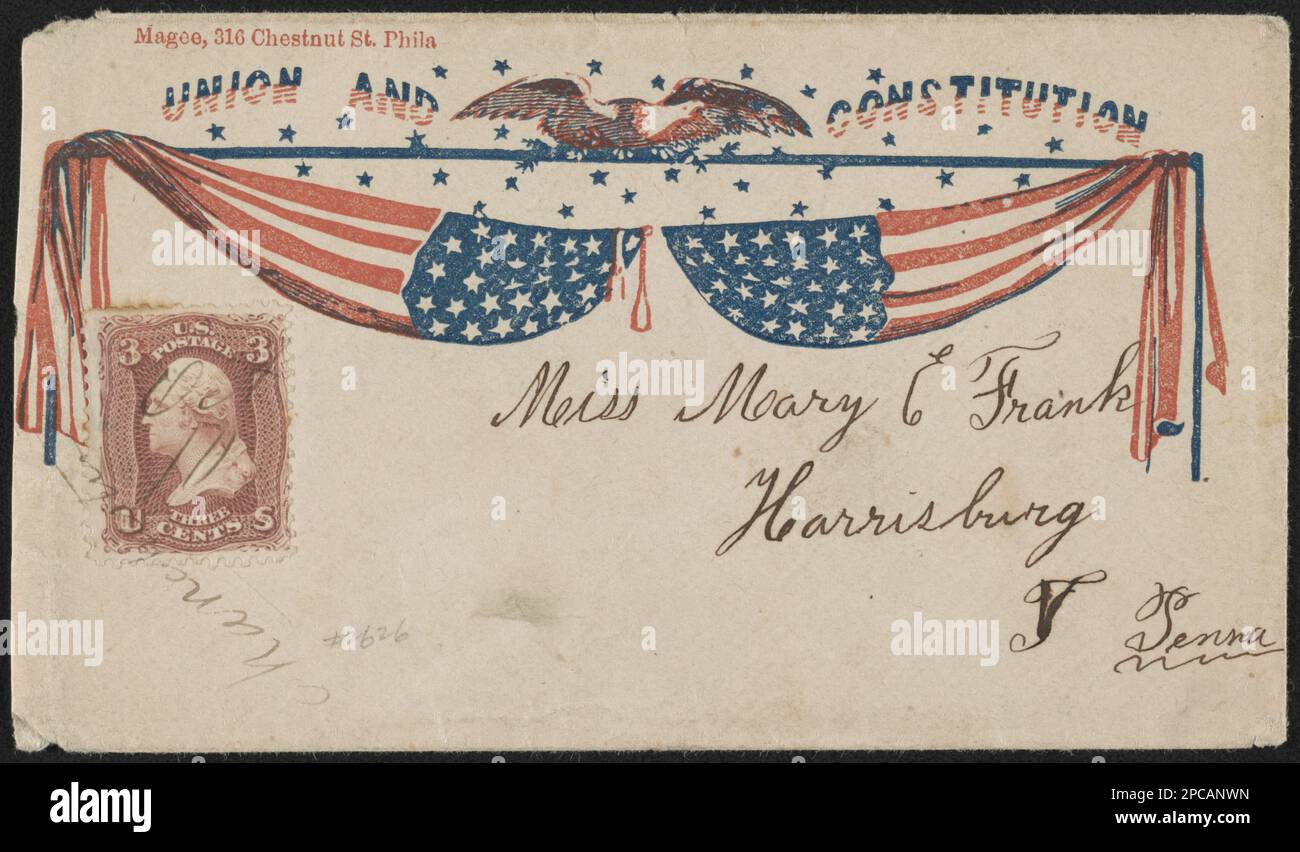 Magee, 316 Chestnut St. Phila
UNION AND CONSTITUTION
3 U.S. 3
POSTAGE
THREE
U CENTS S
Miss Mary E Frank
Harrisburg
Penna
alamy
Image ID: 2PCANWN
www.alamy.com